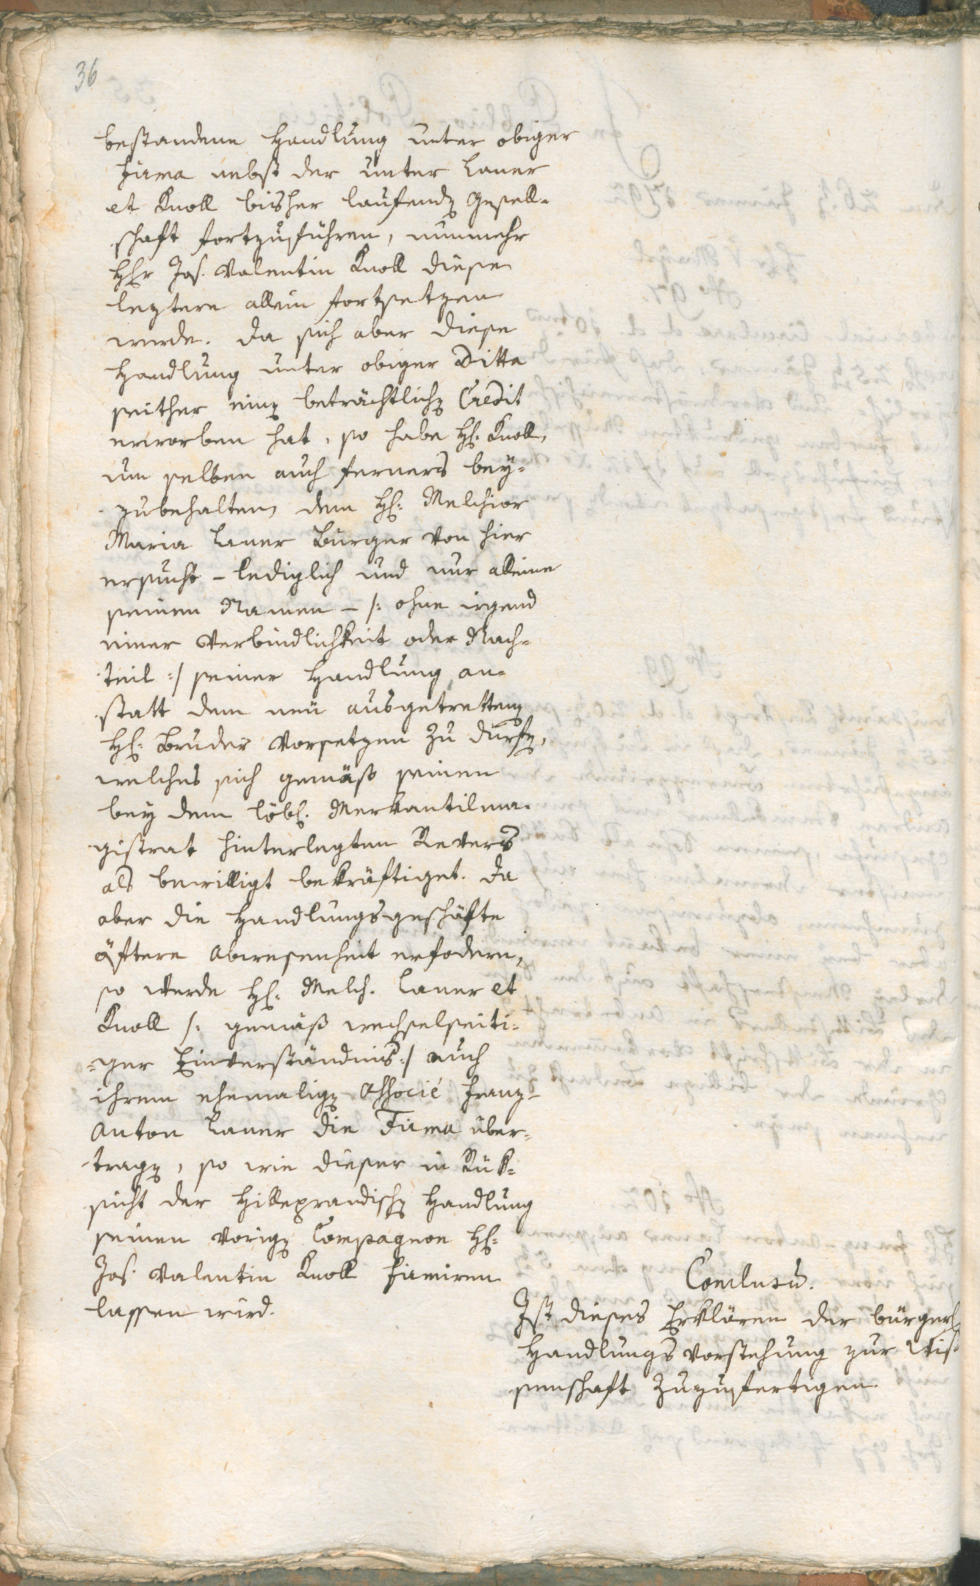 36
bestandene Handlung unter obiger
Firma nebst der unter Laner
et Knoll bisher laufenden Gesell-
schaft fortzuführen, nunmehr
HHr Jos. Valentin Knoll diese
leztere allein fortsetzen
werde. Da sich aber diese
Handlung unter obiger Ditta
seither einen beträchtlichen Credit
erworben hat, so habe HH. Knoll,
um selben auch ferners bey-
zubehalten, dem HH: Melchior
Maria Laner Bürger von hier
ersucht – lediglich und nur alleine
seinen Namen – /: ohne irgend
einer Verbindlichkeit oder Nach-
teil :/ seiner Handlung an-
statt dem neu ausgetrettenen
HH: Bruder Vorsetzen zu dürfen,
welches sich gemäß seinen
bey dem löbl. Merkantilma-
gistrat hinterlegten Revers
als bewilligt bekräftiget. Da
aber die Handlungsgeschäfte
öftere Abwesenheit erfodern,
so werde HH: Melch. Laner et
Knoll /: gemäß wechselseiti-
-ger Einverständnis :/ auch
ihrem ehemaligen Associé Franz-
Anton Laner die Firma über-
tragen, so wie dieser in Rük-
sicht der Hilleprandischen Handlung
seinen vorigen Compagnon HH:
Jos. Valentin Knoll firmiren
lassen wird.
Conclusum.
Ist dieses Erklären der bürgerl.
Handlungs Vorstehung zur Wis-
senschaft zuzufertigen